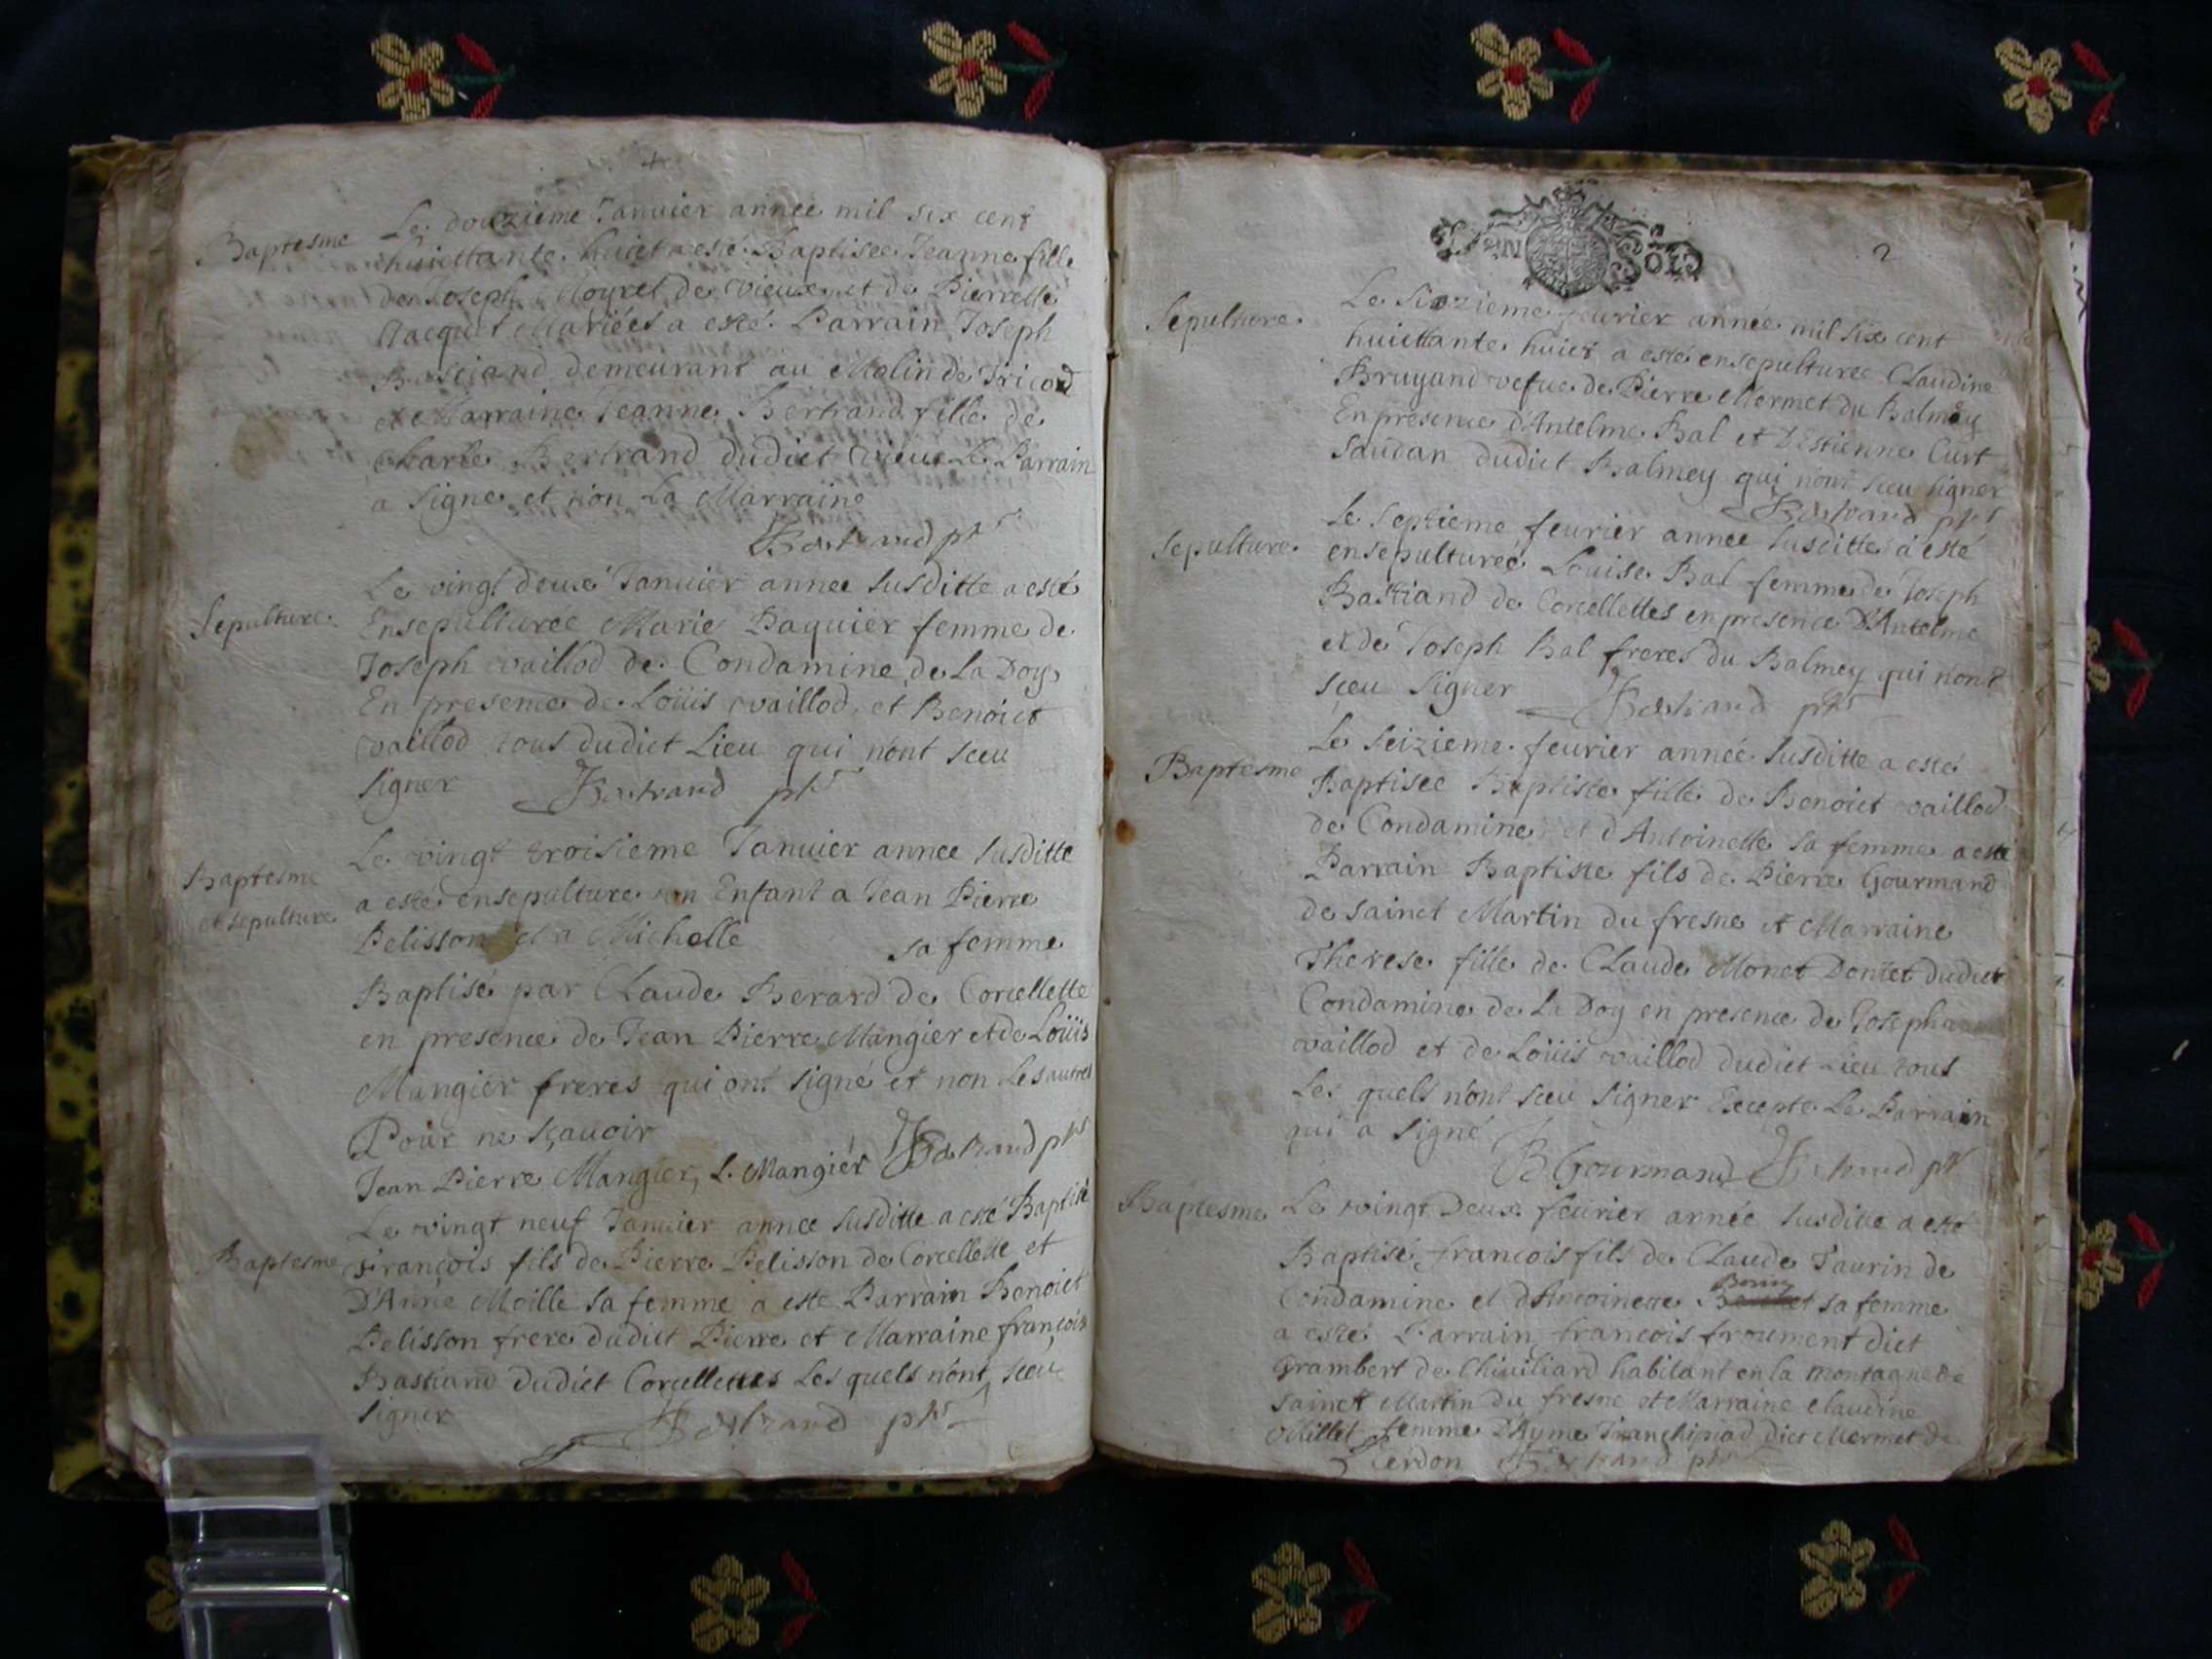 Baptesme
Le douzieme Januier année mil six cent
huicttante huict a esté Baptisée Jeanne fille
de Joseph Moyret de vieux et de Pierrette
Jacquet Mariées a esté Parrain Joseph
Bastiand demeurant au Molin de Tricod
et Marraine Jeanne Bertrand fille de
charle Bertrand dudict vieux Le Parrain
a signe et non La Marraine
Bertrand ptr
Sepulture
Le vingt deuxé Januier année susditte a esté
Ensepulturée Marie Paquier femme de
Joseph vaillod de Condamine de La Doy
En presence de Loüis vaillod et Benoict
vaillod tous dudict Lieu qui n'ont sceu
signer Bertrand ptr
Baptesme
et sepulture
Le vingt troisieme Januier année susditte
a esté ensepulture un Enfant a Jean Pierre
Pelisson et a Michelle sa femme
Baptisé par Claude Berard de Corcellette
en presence de Jean Pierre Mangier et de Loüis
Mangier freres qui ont signé et non Les autres
Pour ne sçauoir
Jean Pierre Mangier, L. Mangiér Bertrand ptr
Baptesme
Le vingt neuf Januier annee susditte a esté Baptisé
François fils de Pierre Pelisson de Corcellette et
D'Anne Moille sa femme a esté Parrain Benoict
Pelisson frere dudict Pierre et Marraine françoise
Bastiand dudict Corcellettes Les quels n'ont sceu
signer Bertrand ptr
2
Sepulture
Le feurier année mil six cent
huicttante huict a esté ensepulturée Claudine
Bruyand vefue de Pierre Mermet du Balmey
En presence d'Antelme Bal et D'Estienne Curt
Saudan dudict Balmey qui n'ont sceu signer
Bertrand ptr
Sepulture
Le septieme feurier année susditte a esté
ensepulturée Louise Bal femme de Joseph
Bastiand de Corcellettes en presence D'Antelme
et de Joseph Bal freres du Balmey qui n'ont
sceu signer Bertrand ptr
Baptesme
Le seizieme feurier année susditte a esté
Baptisée Baptiste fille de Benoict vaillod
de Condamine et d'Antoinette sa femme a esté
Parrain Baptiste fils de Pierre Gourmand
de sainct Martin du fresne et Marraine
Therese fille de Claude Monet Dentet dudict
Condamine de La Doy en presence de Joseph
vaillod et de Loüis vaillod dudict Lieu tous
Les quels n'ont sceu signer Excepte Le Parrain
qui a signé
B Gourmand Bertrand ptr
Baptesme
Le vingt deux feurier année susditte a esté
Baptisé francois fils de Claude Taurin de
Condamine et d'Antoinette sa femme
a esté Parrain francois froument dict
Grambert de Chiuiliard habitant en la montagne de
sainct Martin du fresne et Marraine Claudine
Millet femme D'Ayme Tranchipiad dict Mermet de
Cerdon Bertrand ptr